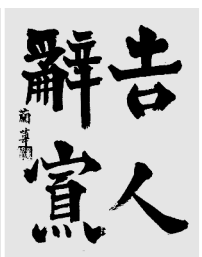 吉人
辭寡